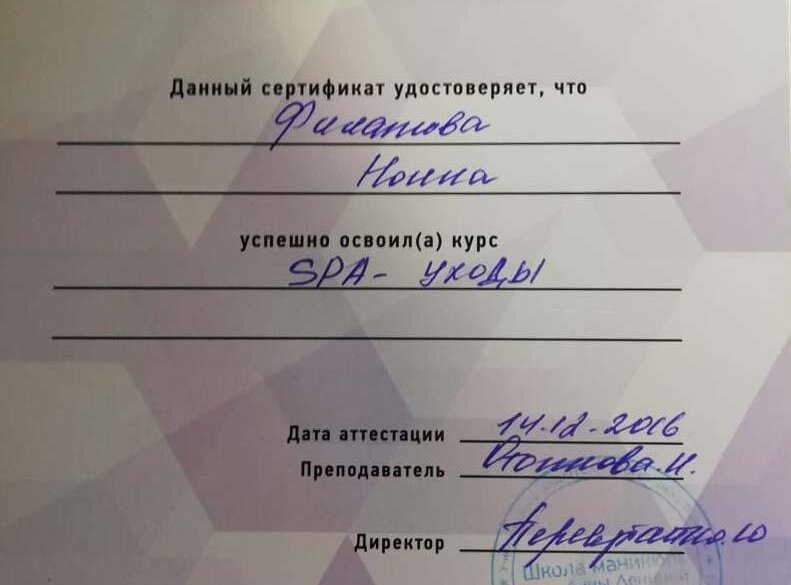 Данный сертификат удостоверяет, что
Филатова
Нонна
успешно освоил(а) курс
SPA- уходы
Дата аттестации 14.12-2016
Преподаватель И.
Директор
Школа маникюра